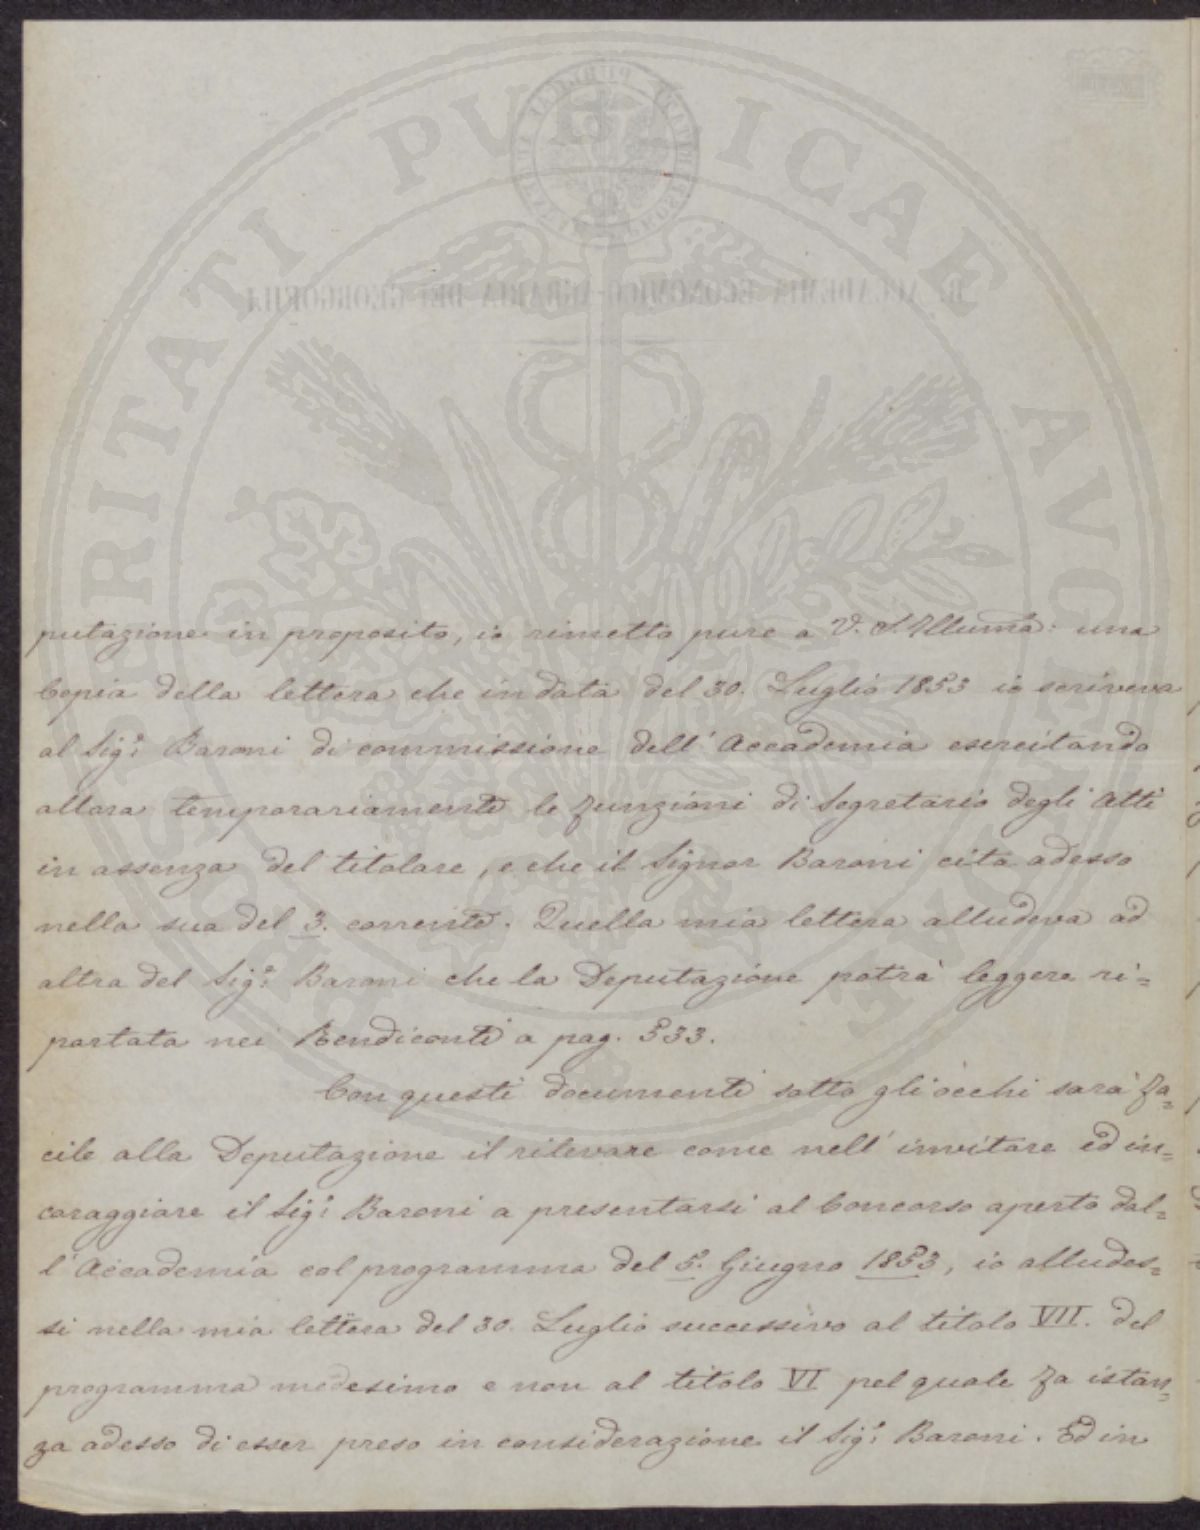 PROSPERITATI PUBLICAE AVGENDAE
R. ACCADEMIA ECONOMICO-AGRARIA DEI GEORGOFILI
putazione in proposito, io rimetto pure a V. S. Illuma: una
Copia della lettera che in data del 30. Luglio 1853 io scriveva
al Sigr: Baroni di commissione dell'Accademia esercitando
allora temporariamente le funzioni di Segretario degli Atti
in assenza del titolare, e che il Signor Baroni cita adesso
nella sua del 3. corrente. Quella mia lettera alludeva ad
altra del Sigr: Baroni che la Deputazione potrà leggere ri=
portata nei Rendiconti a pag. 533.
Con questi documenti sotto gli occhi sarà fa=
cile alla Deputazione il rilevare come nell'invitare ed in=
coraggiare il Sigr: Baroni a presentarsi al Concorso aperto dal=
l'Accademia col programma del 5. Giugno 1853, io alludes=
si nella mia lettera del 30. Luglio successivo al titolo VII. del
programma medesimo e non al titolo VI pel quale fa istan=
za adesso di esser preso in considerazione il Sigr: Baroni. Ed in